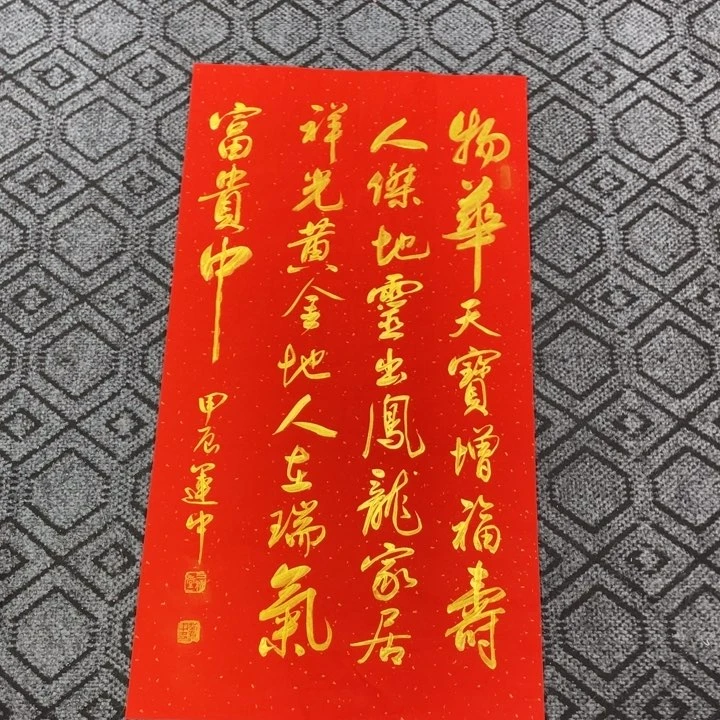 物華天寶增福壽
人傑地靈出鳳龍家居
祥光黄金地人在瑞氣
富貴中
甲辰運中